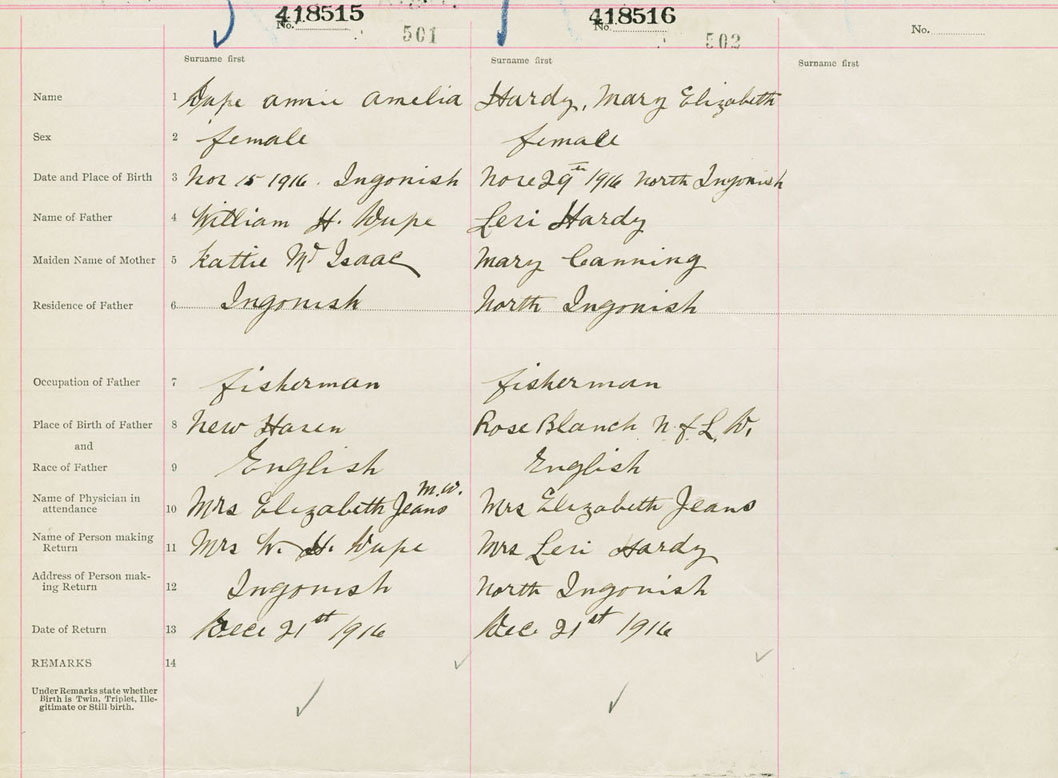 418515 418516
No. No. No.
501 502
Surname first Surname first Surname first
Name 1 annie amelia Hardy, Mary Elizabeth
Sex 2 female female
Date and Place of Birth 3 Nov 15 1916. Ingonish Nove 29th 1916 North Ingonish
Name of Father 4 William H. Levi Hardy
Maiden Name of Mother 5 Kattie Mc Isaac Mary Canning
Residence of Father 6 Ingonish North Ingonish
Occupation of Father 7 fisherman fisherman
Place of Birth of Father 8 New Haven Rose Blanch N.f.L.D.
and
Race of Father 9 English English
Name of Physician in
attendance 10 Mrs Elizabeth Jeans m.w. Mrs Elizabeth Jeans
Name of Person making
Return 11 Mrs W. H. Mrs Levi Hardy
Address of Person mak-
ing Return 12 Ingonish North Ingonish
Date of Return 13 Dece 21st 1916 Dec 21st 1916
REMARKS 14
Under Remarks state whether
Birth is Twin, Triplet, Ille-
gitimate or Still-birth.